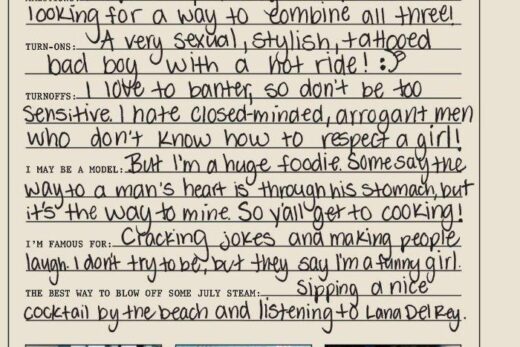 looking for a way to combine all three!
TURN-ONS: A very sexual, stylish, tattooed
bad boy with a hot ride! :P
TURNOFFS: I love to banter, so don't be too
sensitive. I hate closed-minded, arrogant men
who don't know how to respect a girl!
I MAY BE A MODEL: But I'm a huge foodie. Some say the
way to a man's heart is through his stomach, but
it's the way to mine. So y'all get to cooking!
I'M FAMOUS FOR: Cracking jokes and making people
laugh. I don't try to be, but they say I'm a funny girl.
THE BEST WAY TO BLOW OFF SOME JULY STEAM: Sipping a nice
cocktail by the beach and listening to Lana Del Rey.